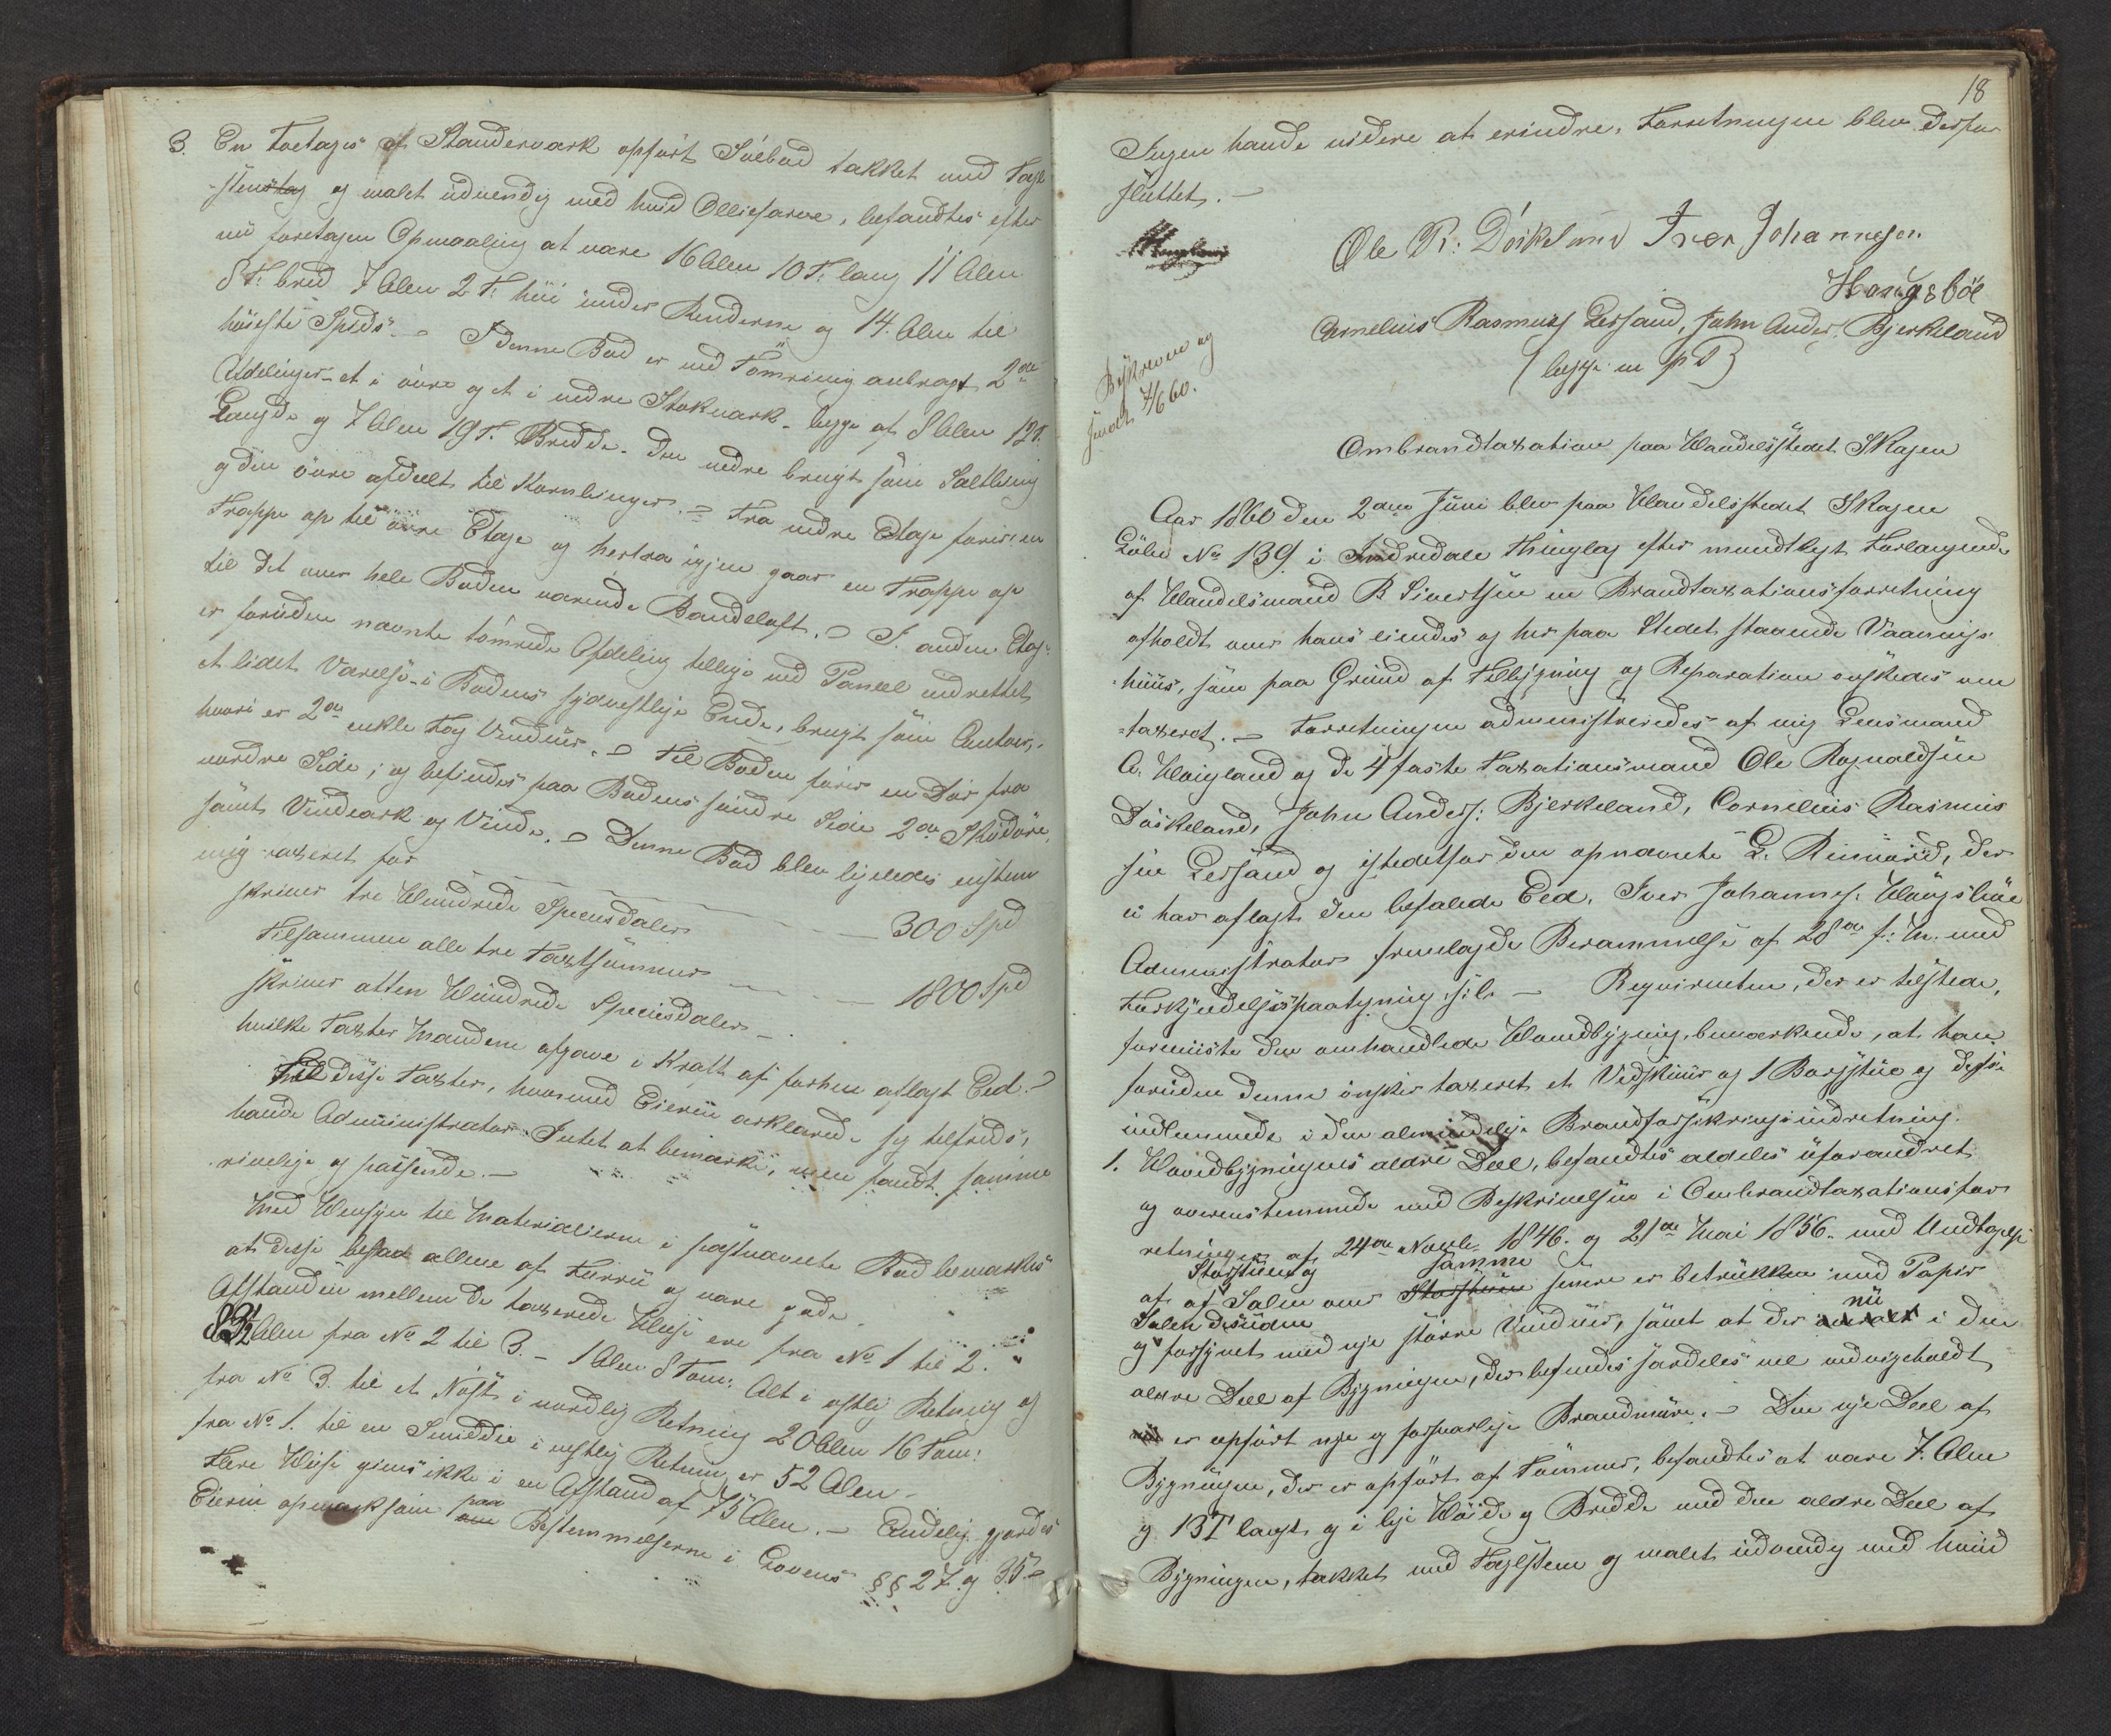 3. En Toetages af Standerværk opført Søebod takket med Tagl
-steenstag og malet udvendig med hvid Olliefarve, befandtes efter
nu foretagen Opmaaling at være 16 Alen 10 T. lang 11 Alen
8 T. bred 7 Alen 2 T. høi under Renderne og 14. Alen til
høieste Spids. - I denne Bod er ved Tømring anbragt 2de
Afdelinger - et i øvre og et i nedre Stokværk - begge af 8 Alen 12 T.
Længde og 7 Alen 19 T. Bredde. Den nedre brugt som Saltbing
og den øvre afdeelt til Kornbinger. - Fra nedre Etage fører en
Trappe op til øvre Etage og herfra igjen gaar en Trappe op
til det over hele Boden værende Bandeloft. - I anden Etage
er foruden nævnte tømrede Afdeling tillige ved Paneel indrettet
et lidet Værelse - i Bodens sydvestlige Ende, brugt som Contoir,
hvori er 2de enkle Fag Vinduer. - Til Boden fører en Dør fra
nordre Side; og befindes paa Bodens søndre Side 2de Skodøre,
samt Vindeark og Vinde. - Denne Bod blev ligeledes eenstem
mig taxeret for
skriver tre Hundrede Speciesdaler - 300 Spd
Tilsammen alle tre Taxtsummer - 1800 Spd
skriver atten Hundrede Speciesdaler -
hvilke Taxter Mændene afgave i Kraft af forhen aflagt Eed. -
Til disse Taxter, hvormed Eieren erklærede sig tilfreds,
havde Administrator Intet at bemærke, men fandt samme
rimelige og passende. -
Med Hensyn til Materialierne i sidstnævnte Bod bemærkes
at disse bestaae alene af Furru og vare gode.
Afstanden mellem de taxerede Huse ere fra No 1 til 2.
83½ Alen fra No 2 til 3. - 1 Alen 8 Tom: Alt i østlig Retning og
fra No 3. til et Nøst i nordlig Retning 20 Alen 16 Tom:
fra No 1. til en Smiddie i vestlig Retning er 52 Alen -
Flere Huse gives ikke i en Afstand af 75 Alen. - Endelig gjordes
Eieren opmærksom paa Bestemmelserne i Lovens §§ 27. og 35. -
18
Ingen havde videre at erindre, Forretningen blev derfor
sluttet. -
Ole R: Döskeland Iver Johannesen
Haugsböe
Cornelius Rasmus Lersand, John Anders. Bjerkeland
(begge m p P)
Beskreven og
sendt 4/6 60.
Ombrandtaxation paa Handelsstedet Skagen
Aar 1860 den 2den Juni blev paa Handelsstedet Skagen
Løbe No 139 i Indredale Thinglag efter mundtligt Forlangende
af Handelsmand B. Sivertsen en Brandtaxationsforretning
afholdt over hans eiendes og her paa Stedet staaende Vaanings-
-huus, som paa Grund af Tilbygning og Reparation ønskedes om
-taxeret. - Forretningen administreredes af mig Lensmand
A. Haugland og de 4 faste Taxationsmænd Ole Ragnvaldsen
Döskeland, John Anders: Bjerkeland, Cornelius Rasmus
sen Lersand og istedetfor den opnævnte L. Reinaas, der
ei har aflagt den befalede Eed, Iver Johannes. Haugsböe
Administrator fremlagde Berammelse af 28de f: M. med
Forkyndelsespaategning: sil. - Requirenten, der er tilstede,
foreviiste den omhandlede Hovedbygning, bemærkende, at han
foruden denne ønsker taxeret et Vedskuur og 1 Borgstue og disse
indlemmede i den almindelige Brandforsikringsindretning.
1. Hovedbygningens ældre Deel, befandtes aldeles uforandret
og overensstemmende med Beskrivelsen i Ombrandtaxationsfor
retninger af 24de Novbr. 1846. og 21de Mai 1856. med Undtagelse
af at Storstuen og Salen over samme Storstuen senere er betrukken med Papir
og Salen desuden forsynet med nye større Vinduer, samt at der nu i den
ældre Deel af Bygningen, der befindes særdeles vel vedligeholdt
er opført nye og forsvarlige Brandmure. - Den nye Deel af
Bygningen, der er opført af Tømmer, befandtes at være 7. Alen
og 13 T langt og i lige Høide og Bredde med den ældre Deel af
Bygningen, takket med Taglsteen og malet udvendig med hviid